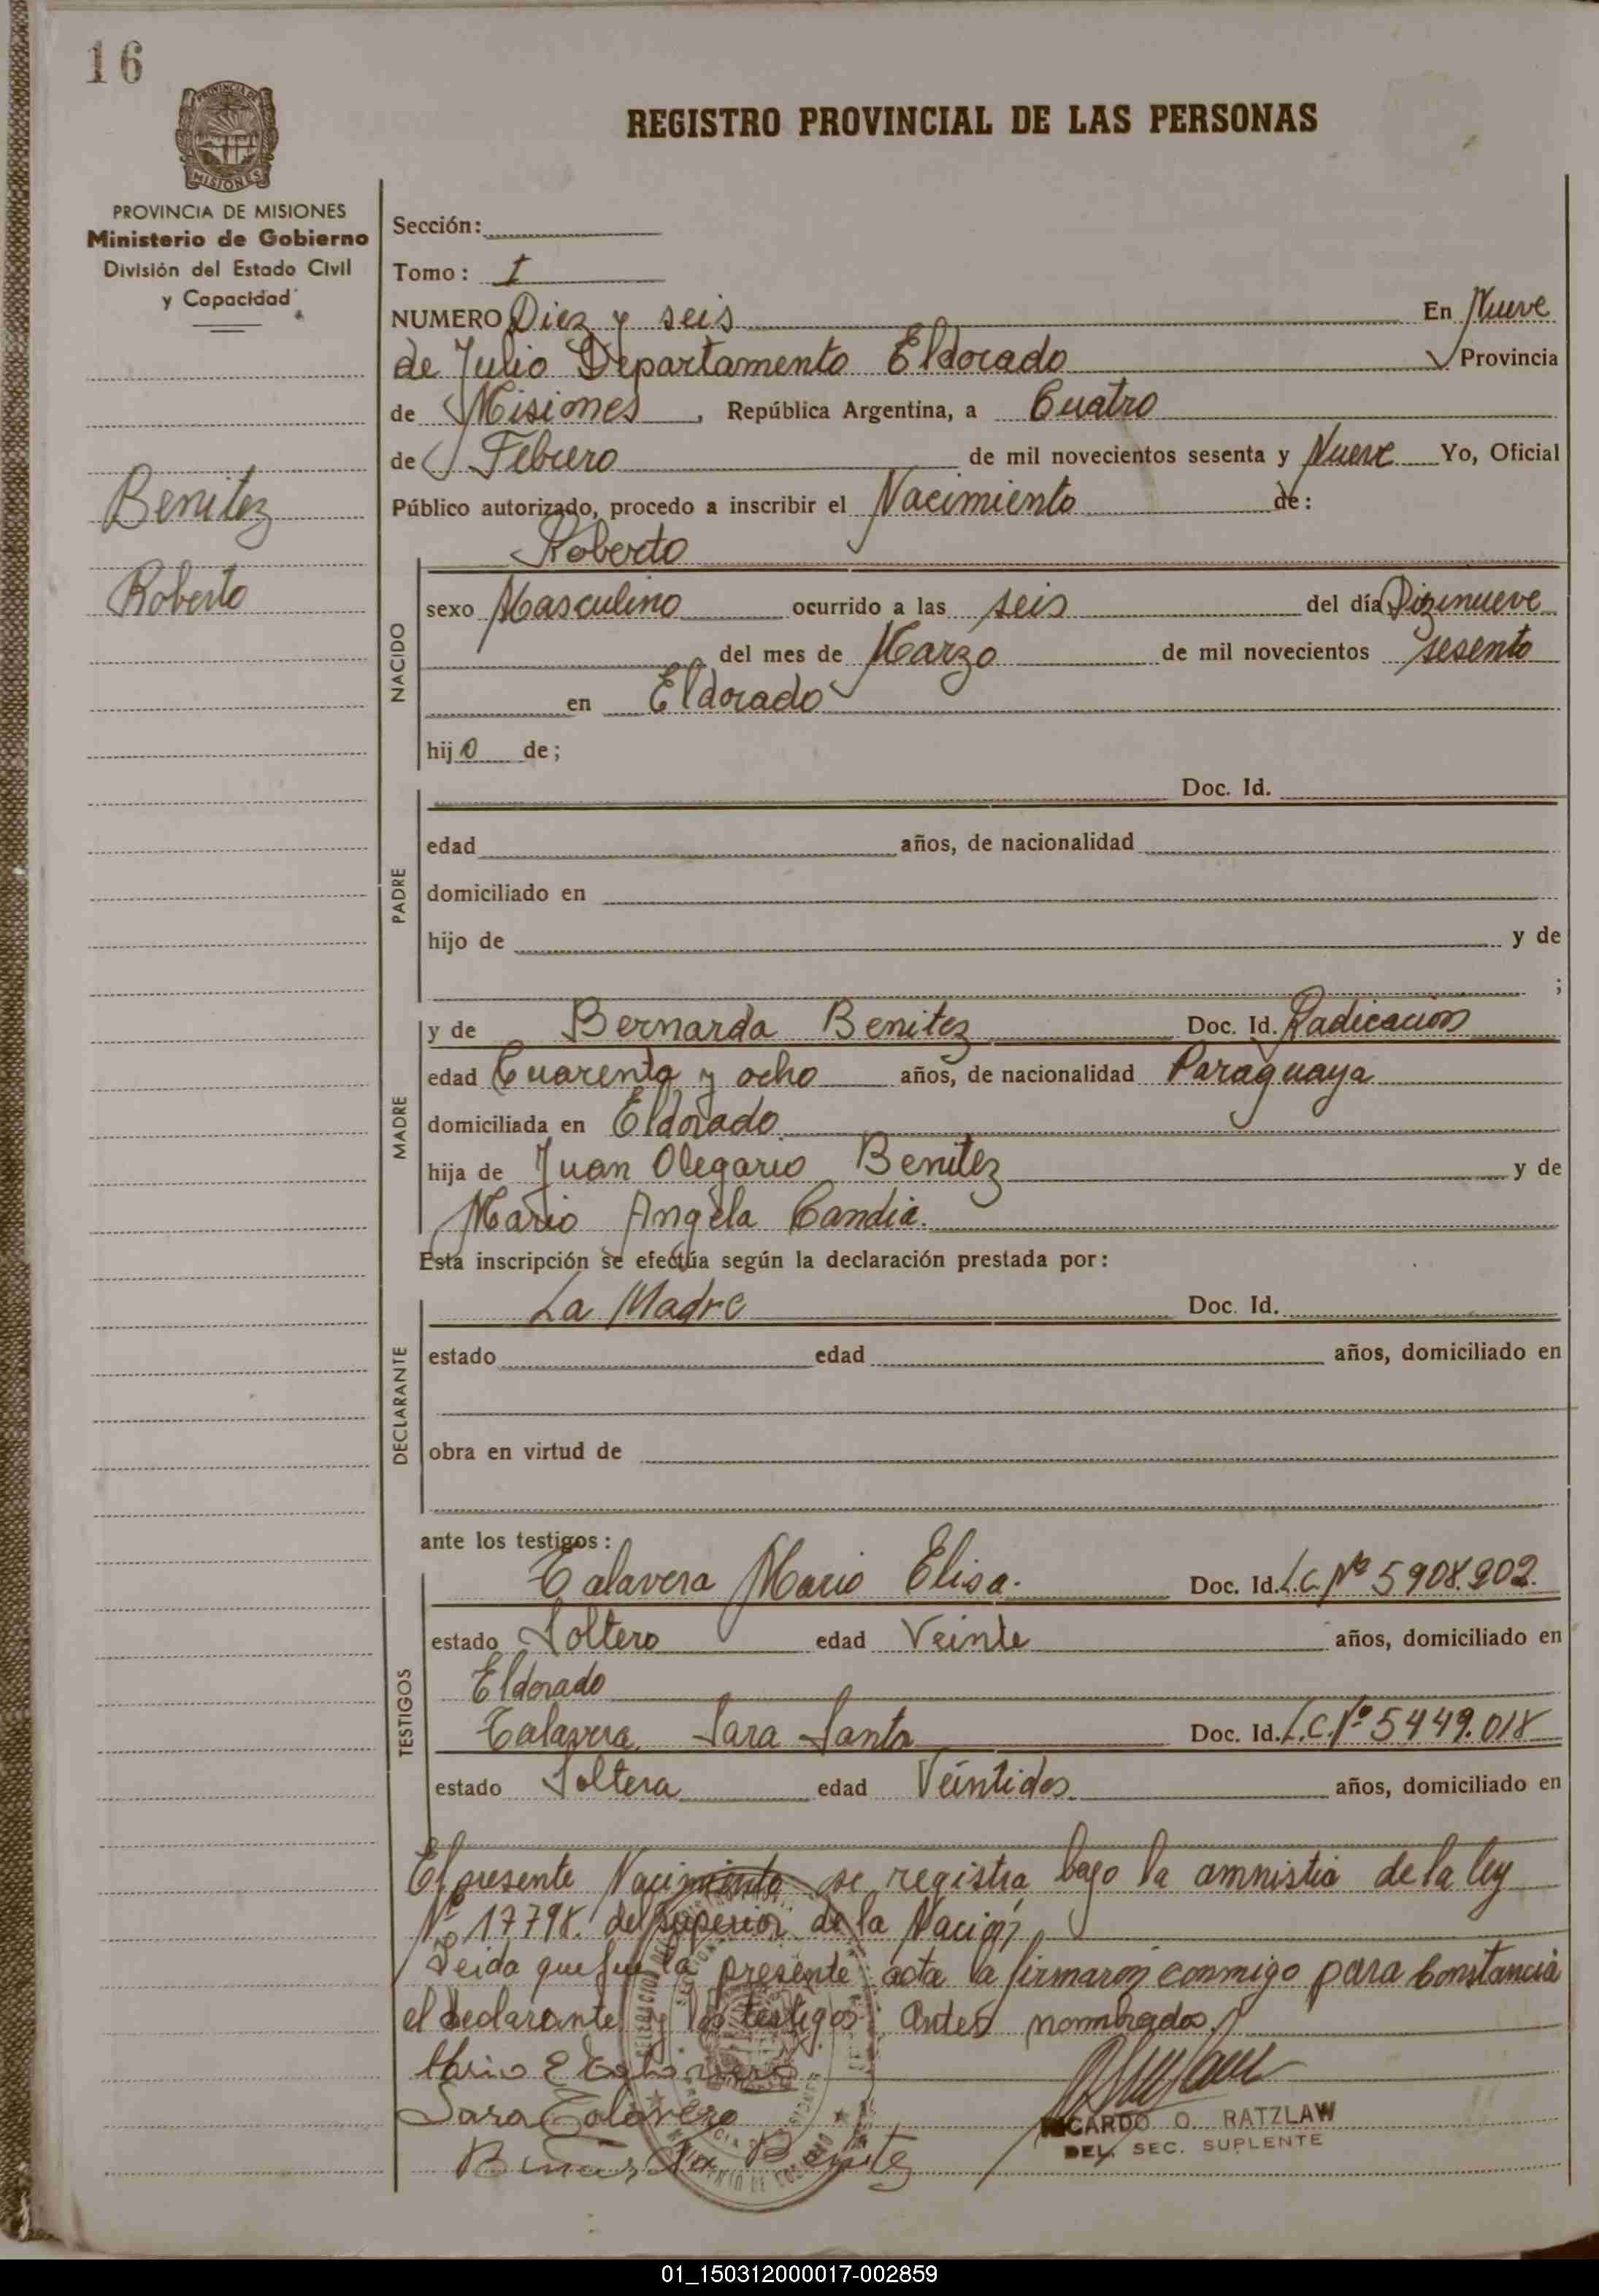 16
PROVINCIA DE
MISIONES
REGISTRO PROVINCIAL DE LAS PERSONAS
PROVINCIA DE MISIONES
Ministerio de Gobierno
División del Estado Civil
y Capacidad
Benitez
Roberto
Sección:
Tomo: I
NUMERO Diez y seis En Nueve
de Julio Departamento Eldorado Provincia
de Misiones, República Argentina, a Cuatro
de Febrero de mil novecientos sesenta y Nueve Yo, Oficial
Público autorizado, procedo a inscribir el Nacimiento de:
Roberto
NACIDO
sexo Masculino ocurrido a las seis del día Dizinueve
del mes de Marzo de mil novecientos sesento
en Eldorado
hijo de;
PADRE
Doc. Id.
edad años, de nacionalidad
domiciliado en
hijo de y de
;
MADRE
y de Bernarda Benitez Doc. Id. Radicacion
edad Cuarenta y ocho años, de nacionalidad Paraguaya
domiciliada en Eldorado
hija de Juan Olegario Benitez y de
Mario Angela Candia.
Esta inscripción se efectúa según la declaración prestada por:
DECLARANTE
La Madre Doc. Id.
estado edad años, domiciliado en
obra en virtud de
ante los testigos:
TESTIGOS
Talavera Mario Elisa. Doc. Id. L.C. Nº 5908.902.
estado Soltero edad Veinte años, domiciliado en
Eldorado
Talavera Sara Santa Doc. Id. L.C. Nº 5449.018
estado Soltera edad Veintidos. años, domiciliado en
El presente Nacimiento se registra bajo la amnistia de la ley
Nº 17798. del superior de la Nación
Leida que fue la presente acta la firmaron conmigo para constancia
el declarante y los testigos antes nombrados.
Mario E Talavera
Sara Talavera
Benitez
RICARDO O. RATZLAW
DEL. SEC. SUPLENTE
01_150312000017-002859